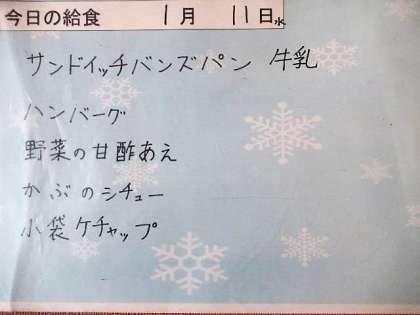 今日の給食 1月 11日水
サンドイッチバンズパン 牛乳
ハンバーグ
野菜の甘酢あえ
かぶのシチュー
小袋ケチャップ